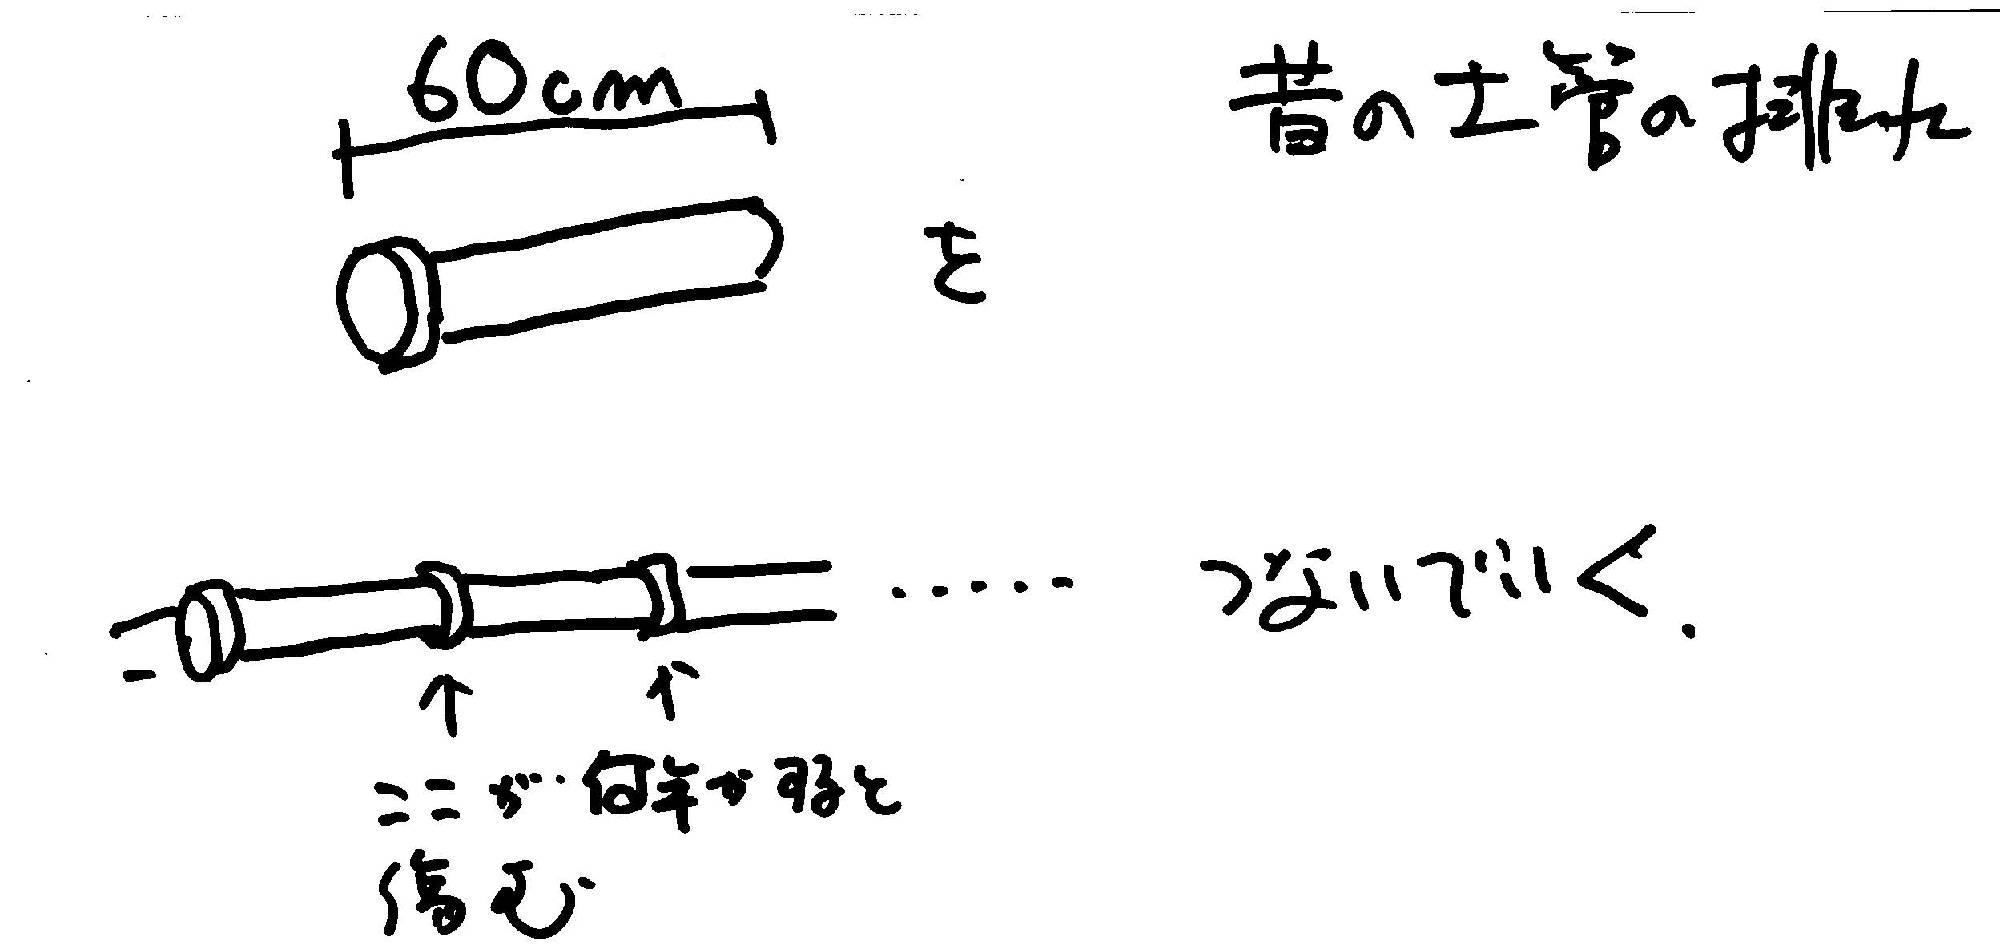 60cm
昔の土管の排水
を
つないでいく.
ここが何年かすると
傷む